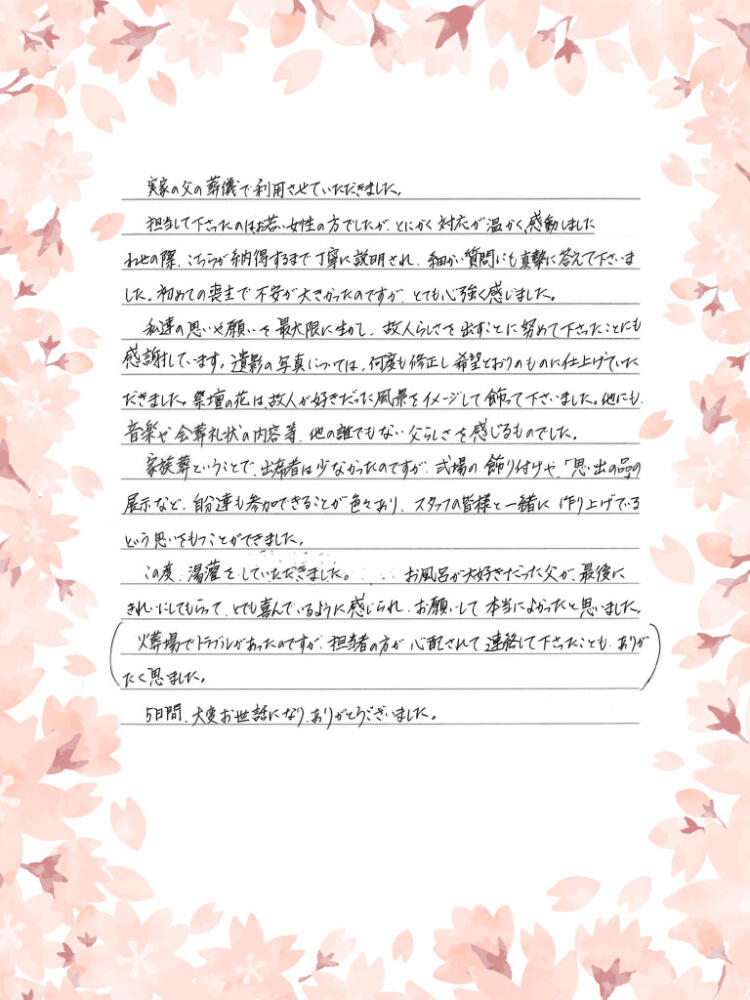 実家の父の葬儀で利用させていただきました。
担当して下さったのはお若い女性の方でしたが、とにかく対応が温かく、感動しました
れせの際、こちらが納得するまで丁寧に説明され、細かい質問にも真摯に答えて下さいま
した。初めての喪主で不安が大きかったのですが、とても心強く感じました。
私達の思いや願いを最大限に生かし、故人らしさを出すことに努めて下さったことにも
感謝しています。遺影の写真については、何度も修正し希望どおりのものに仕上げていた
だきました。祭壇の花は故人が好きだった風景をイメージして飾って下さいました。他にも、
音楽や会葬礼状の内容等、他の誰でもない父らしさを感じるものでした。
家族葬ということで、出席者は少なかったのですが、式場の飾り付けや、「思い出の品」の
展示など、自分達も参加できることが色々あり、スタッフの皆様と一緒に作り上げている
という思いをもつことができました。
この度、湯灌をしていただきました。お風呂が大好きだった父が、最後に
きれいにしてもらって、とても喜んでいるように感じられ、お願いして本当によかったと思いました。
(火葬場でトラブルがあったのですが、担当者の方が心配されて連絡して下さったことも、ありが
たく思いました。)
5日間、大変お世話になり、ありがとうございました。